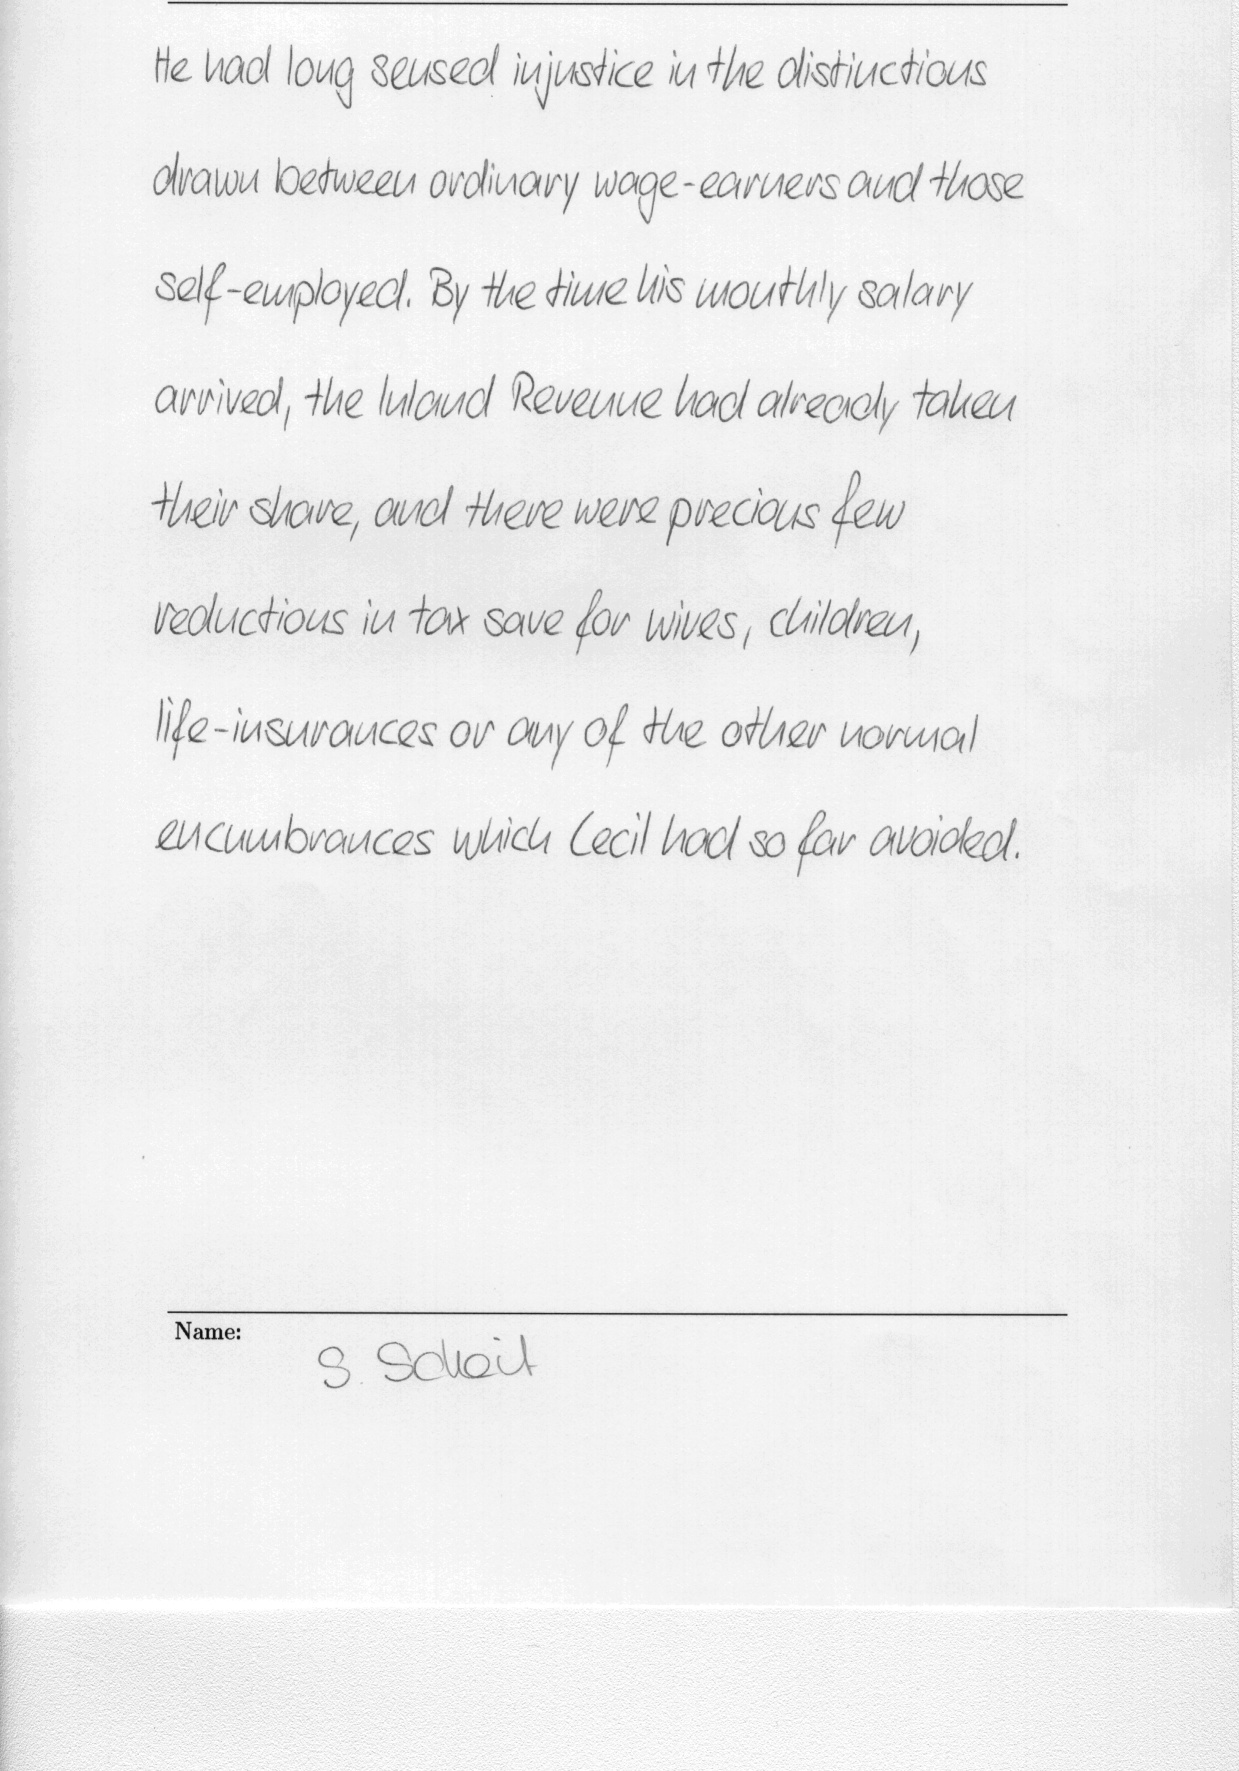 He had long sensed injustice in the distinctions
drawn between ordinary wage-earners and those
self-employed. By the time his monthly salary
arrived, the Inland Revenue had already taken
their share, and there were precious few
reductions in tax save for wives, children,
life-insurances or any of the other normal
encumbrances which Cecil had so far avoided.
Name:
S.